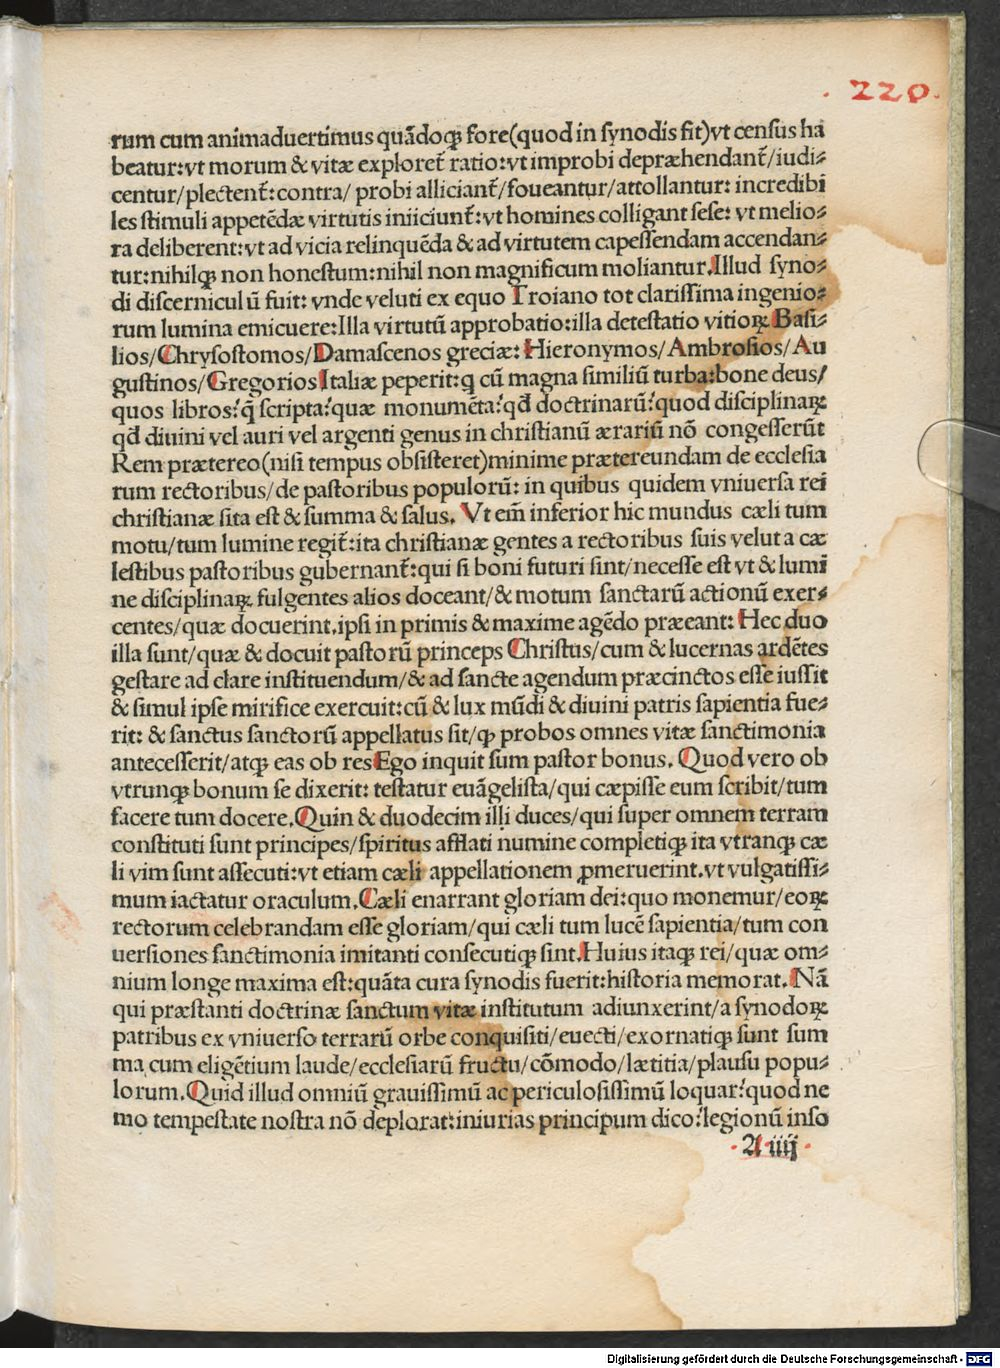 . 220.
rum cum animaduertimus quãdoqꝫ fore(quod in ſynodis fit)vt cenſus ha
beatur:vt morum & vitæ exploret̃ ratio:vt improbi depræhendant̃/iudi⸗
centur/plectent̃:contra/ probi alliciant̃/foueantur/attollantur: incredibi
les ſtimuli appetẽdæ virtutis iniiciunt̃:vt homines colligant ſeſe: vt melio⸗
ra deliberent:vt ad vicia relinquẽda & ad virtutem capeſſendam accendan⸗
tur:nihilqꝫ non honeſtum:nihil non magnificum moliantur.Illud ſyno⸗
di diſcerniculũ fuit: vnde veluti ex equo Troiano tot clariſſima ingenio⸗
rum lumina emicuere:Illa virtutũ approbatio:illa deteſtatio vitioꝝ Baſi⸗
lios/Chryſoſtomos/Damaſcenos greciæ: Hieronymos/Ambroſios/Au
guſtinos/Gregorios Italiæ peperit:q cũ magna ſimiliũ turba:bone deus/
quos libros?q̃ ſcripta?quæ monumẽta?qđ doctrinarũ?quod diſciplinaꝝ
qđ diuini vel auri vel argenti genus in chriſtianũ ærariũ nõ congeſſerũt
Rem prætereo(niſi tempus obſiſteret)minime prætereundam de eccleſia
rum rectoribus/de paſtoribus populorũ: in quibus quidem vniuerſa rei
chriſtianæ ſita eſt & ſumma & ſalus. Vt em̃ inferior hic mundus cæli tum
motu/tum lumine regit̃:ita chriſtianæ gentes a rectoribus ſuis velut a cæ
leſtibus paſtoribus gubernant̃:qui ſi boni futuri ſint/neceſſe eſt vt & lumi
ne diſciplinaꝝ fulgentes alios doceant/& motum ſanctarũ actionũ exer⸗
centes/quæ docuerint,ipſi in primis & maxime agẽdo præeant: Hec duo
illa ſunt/quæ & docuit paſtorũ princeps Chriſtus/cum & lucernas ardẽtes
geſtare ad clare inſtituendum/& ad ſancte agendum præcinctos eſſe iuſſit
& ſimul ipſe mirifice exercuit:cũ & lux mũdi & diuini patris ſapientia fue⸗
rit: & ſanctus ſanctorũ appellatus ſit/qꝫ probos omnes vitæ ſanctimonia
anteceſſerit/atqꝫ eas ob res Ego inquit ſum paſtor bonus. Quod vero ob
vtrunqꝫ bonum ſe dixerit: teſtatur euãgeliſta/qui cæpiſſe eum ſcribit/tum
facere tum docere.Quin & duodecim illi duces/qui ſuper omnem terram
conſtituti ſunt principes/ſpiritus afflati numine completiqꝫ ita vtranqꝫ cæ
li vim ſunt aſſecuti:vt etiam cæli appellationem ꝓmeruerint.vt vulgatiſſi⸗
mum iactatur oraculum.Cæli enarrant gloriam dei:quo monemur/eoꝝ
rectorum celebrandam eſſe gloriam/qui cæli tum lucẽ ſapientia/tum con
uerſiones ſanctimonia imitanti conſecutiqꝫ ſint.Huius itaqꝫ rei/quæ om⸗
nium longe maxima eſt:quãta cura ſynodis fuerit:hiſtoria memorat.Nã
qui præſtanti doctrinæ ſanctum vitæ inſtitutum adiunxerint/a ſynodoꝝ
patribus ex vniuerſo terrarũ orbe conquiſiti/euecti/exornatiqꝫ ſunt ſum
ma cum eligẽtium laude/eccleſiarũ fructu/cõmodo/lætitia/plauſu popu⸗
lorum.Quid illud omniũ grauiſſimũ ac periculoſiſſimũ loquar?quod ne
mo tempeſtate noſtra nõ deplorat:iniurias principum dico?legionũ inſo
A iiij
Digitalisierung gefördert durch die Deutsche Forschungsgemeinschaft - DFG